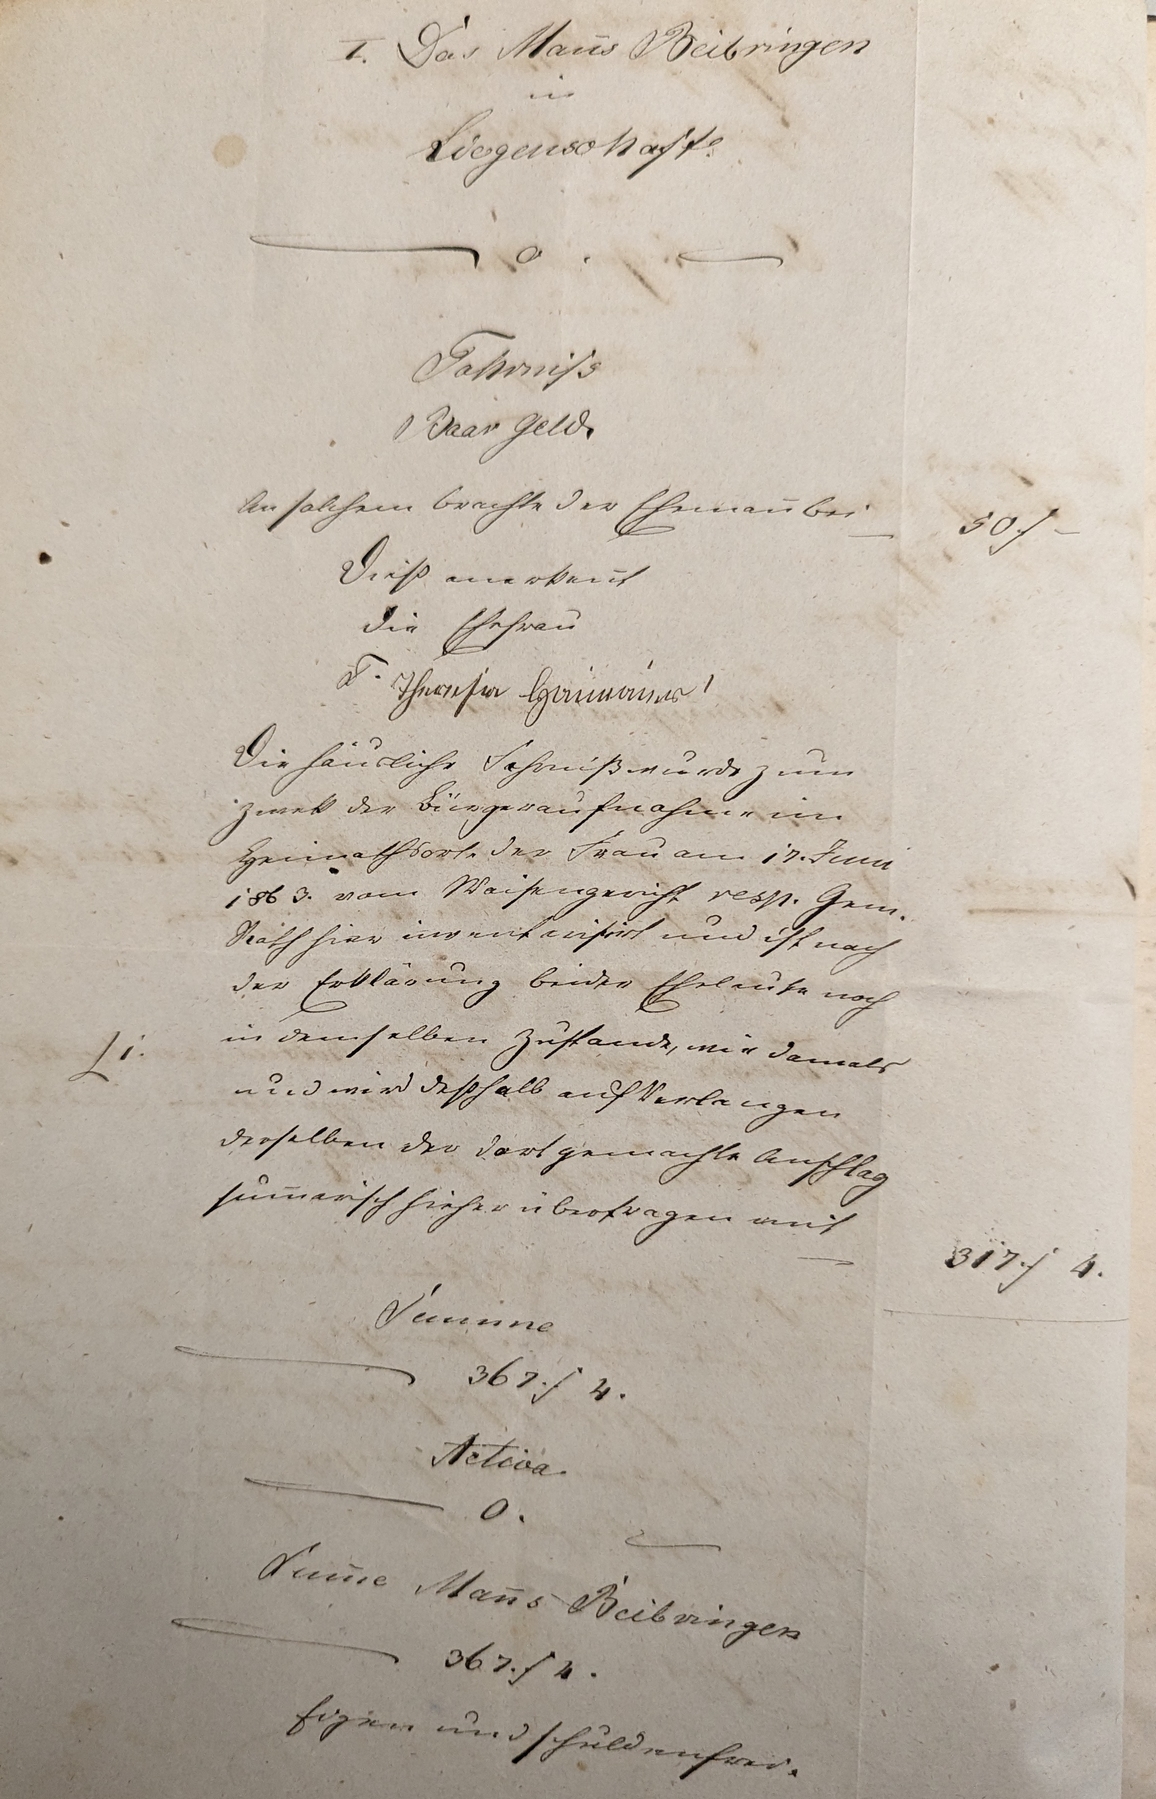 I. Das Man̄s Beibringen
in
Liegenschaft.
0.
Fahrniss
Baar Geld.
An solchem brachte der Eheman̄ bei
50 f –
Dieß anerkent̄
die Ehefrau
T. Theresia
Die häusliche Fahrniß wurde zum
Zwek der Bürgeraufnahme im
Heimathsorte der Frau am 17. Juni
1863. vom Waisengericht resp. Gem.
Rath hier inventarisirt und ist nach
der Erklärung beider Eheleute noch
in demselben Zustande, wie damals
und wird deßhalb auf Verlangen
derselben der dort gemachte Anschlag
sum̄arisch hieher übertragen mit
317. f 4.
Summe
367. f 4.
Activa.
0.
Sum̄e Man̄s Beibringen
367. f 4.
Eigen und schuldenfrei.